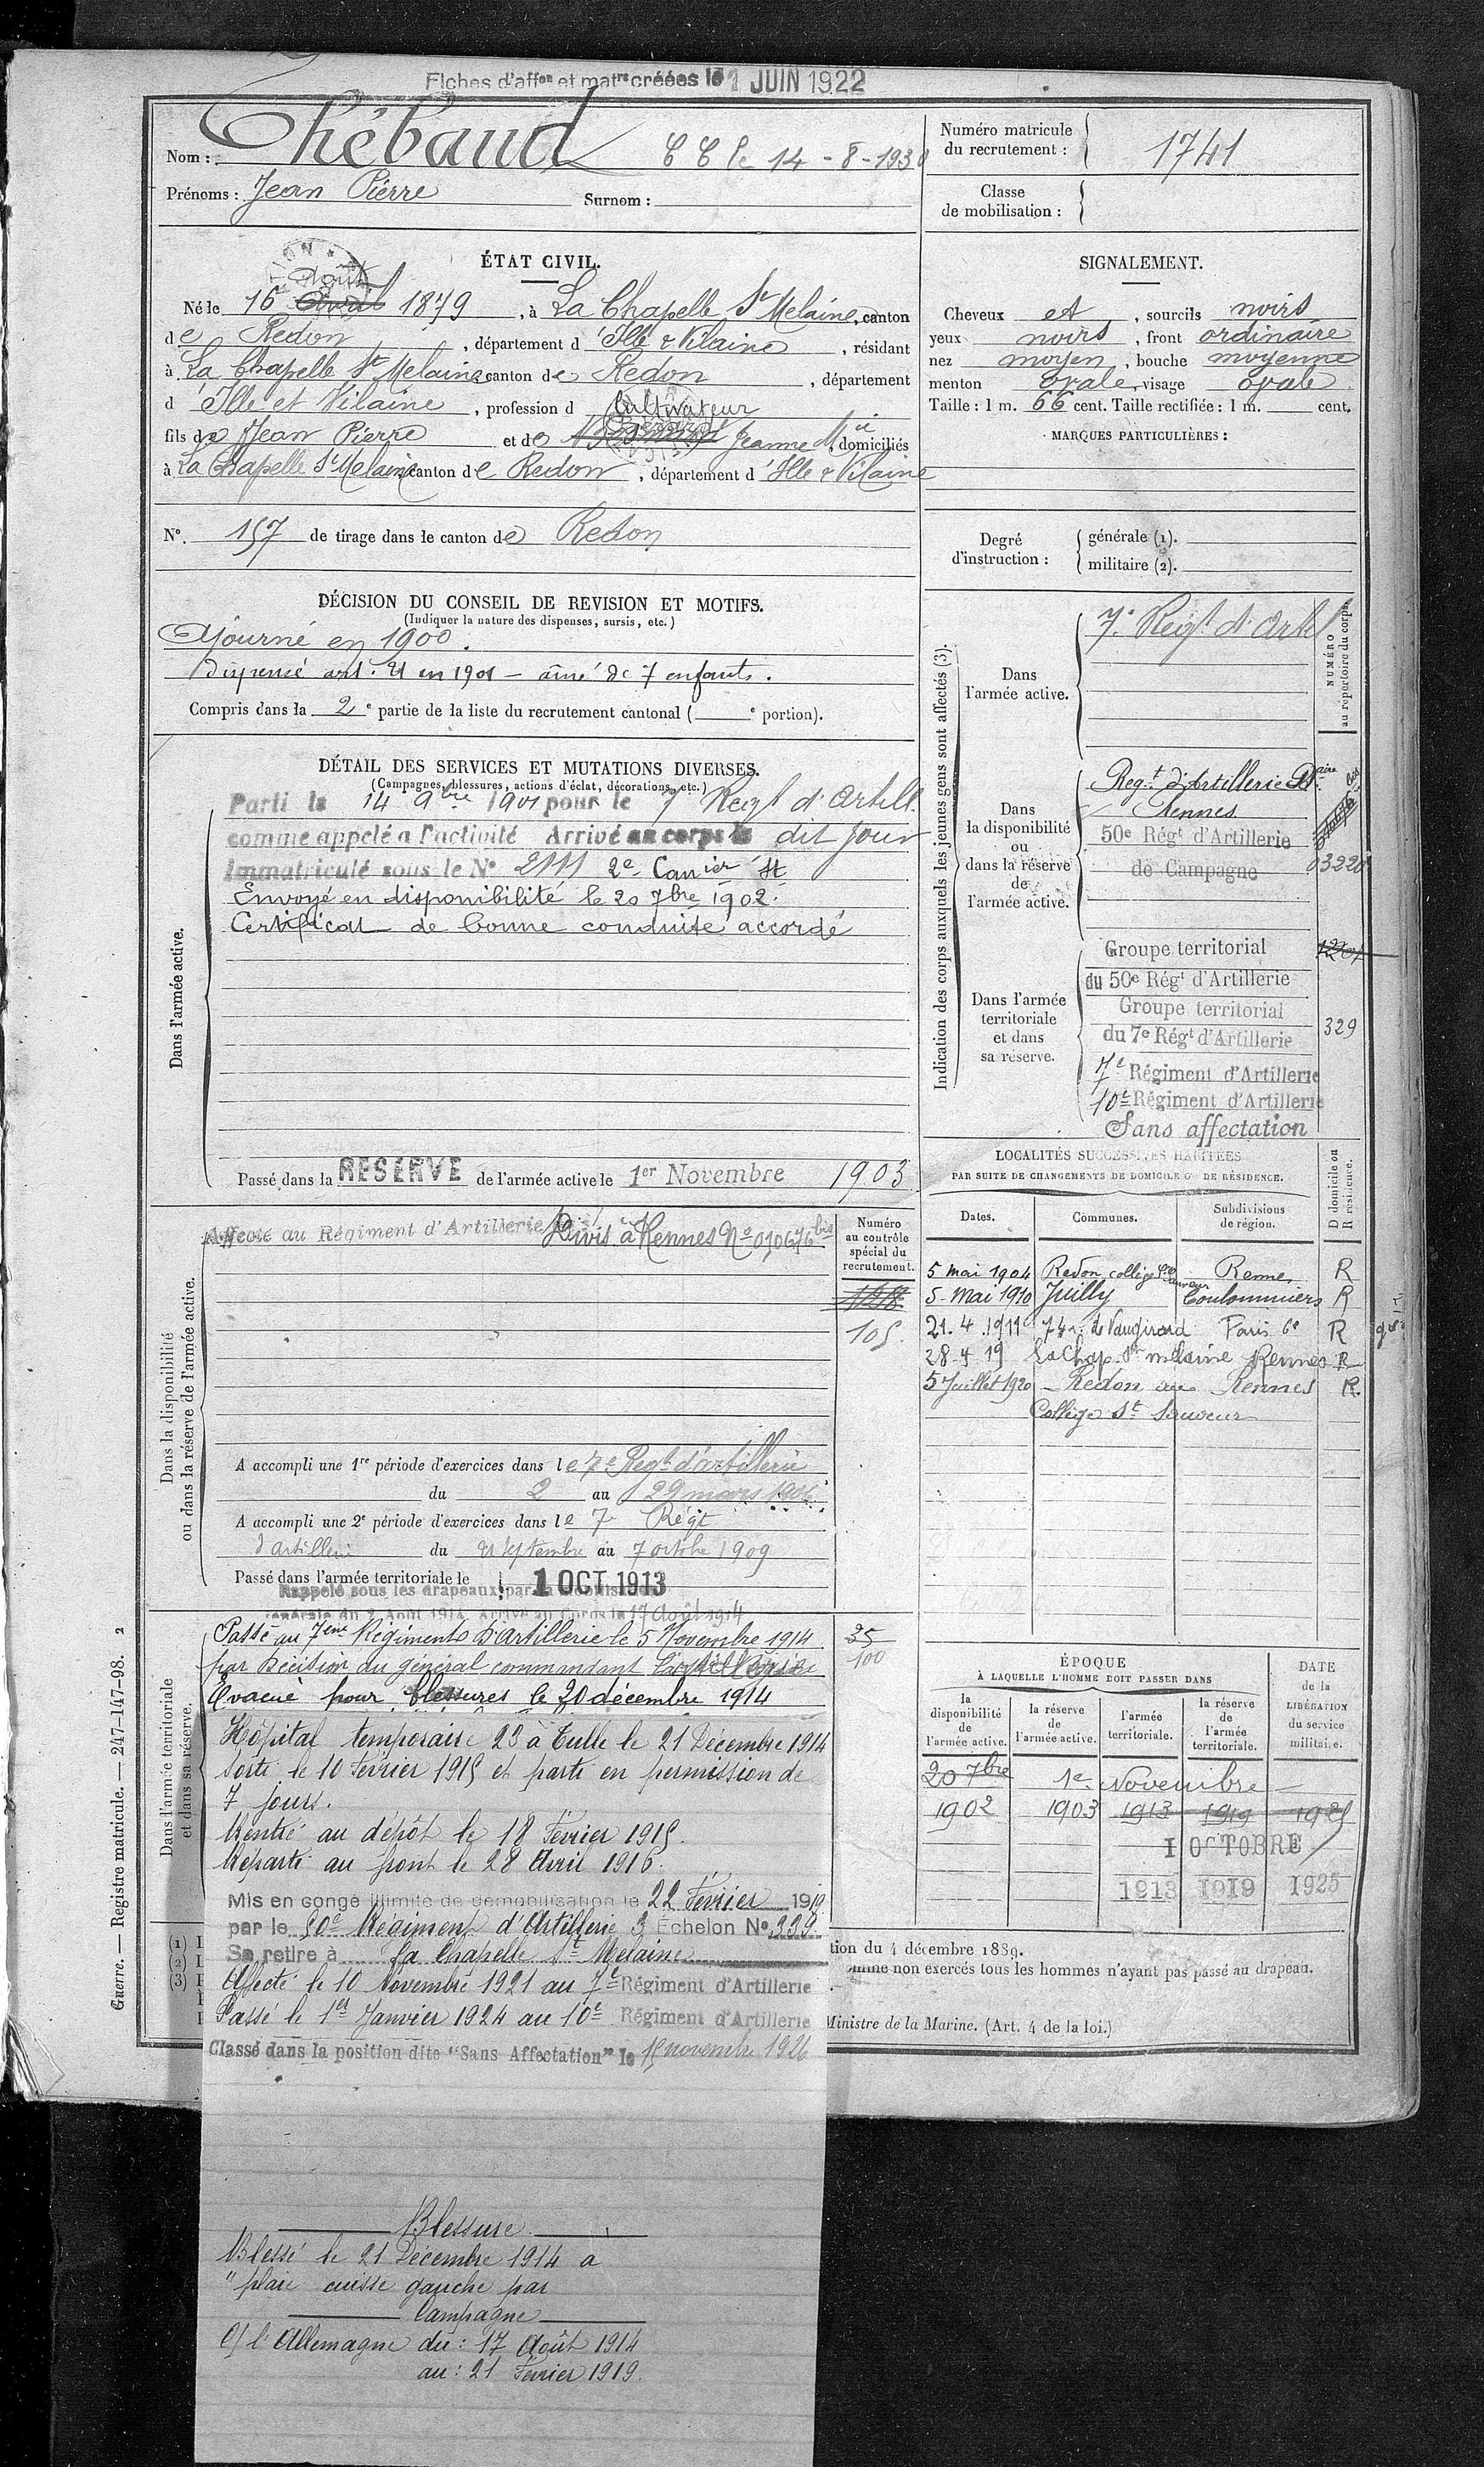 Fiches d'affon et matre créées le 1 JUIN 1922
Nom : Thébaud
le 14-8-1930
Prénoms : Jean Pierre Surnom :
Numéro matricule du recrutement : 1741
Classe de mobilisation :
ÉTAT CIVIL.
Août
Né le 16 Avril 1879, à La Chapelle St Melaine, canton
de Redon, département d'Ille & Vilaine, résidant
à La Chapelle St Melaine canton de Redon, département
d'Ille et Vilaine, profession d Cultivateur
fils de Jean Pierre et de Jeanne Mie, domiciliés
à La Chapelle St Melaine canton de Redon, département d'Ille & Vilaine
N°. 157 de tirage dans le canton de Redon
SIGNALEMENT.
Cheveux et, sourcils noirs
yeux noirs, front ordinaire
nez moyen, bouche moyenne
menton ovale, visage ovale
Taille : 1 m. 66 cent. Taille rectifiée : 1 m. cent.
MARQUES PARTICULIÈRES :
Degré d'instruction : générale (1).
militaire (2).
DÉCISION DU CONSEIL DE REVISION ET MOTIFS.
(Indiquer la nature des dispenses, sursis, etc.)
Ajourné en 1900.
Dispensé art. 21 en 1901 – aîné de 7 enfants.
Compris dans la 2e partie de la liste du recrutement cantonal ( e portion).
DÉTAIL DES SERVICES ET MUTATIONS DIVERSES.
(Campagnes, blessures, actions d'éclat, décorations, etc.)
Dans l'armée active.
Parti le 14 9bre 1901 pour le 7e Regt d'Artill.
comme appelé à l'activité Arrivé au corps le dit jour
Immatriculé sous le N° 2111 2e Canier St
Envoyé en disponibilité le 20 7bre 1902.
Certificat de bonne conduite accordé
Passé dans la RESERVE de l'armée active le 1er Novembre 1903
Indication des corps auxquels les jeunes gens sont affectés (3).
NUMÉRO au répertoire du corps.
Dans l'armée active.
7e Regt d'Artil
Dans la disponibilité ou dans la réserve de l'armée active.
Regt d'Artillerie
Rennes
50e Régt d'Artillerie
de Campagne 03220
Dans l'armée territoriale et dans sa réserve.
Groupe territorial 1201
du 50e Régt d'Artillerie
Groupe territorial
du 7e Régt d'Artillerie 329
7e Régiment d'Artillerie
10e Régiment d'Artillerie
Sans affectation
LOCALITÉS SUCCESSIVES HABITÉES
PAR SUITE DE CHANGEMENTS DE DOMICILE OU DE RÉSIDENCE.
D domicile ou R résidence.
Dates. Communes. Subdivisions de région.
5 mai 1904 Redon collège St Sauveur Rennes R
5 Mai 1910 Juilly Coulommiers R
21.4.1911 74 r. de Vaugirard Paris 6e R
28-4 19 La Chap. St melaine Rennes R
5 Juillet 1920 Redon au Rennes R
Collège St Sauveur
Dans la disponibilité ou dans la réserve de l'armée active.
Affecté au Régiment d'Artillerie Divis à Rennes No 010676 bis
Numéro au contrôle spécial du recrutement.
105
A accompli une 1re période d'exercices dans le 7e Regt d'artillerie
du 2 au 29 mars 1906
A accompli une 2e période d'exercices dans le 7 Régt
d'artillerie du 21 septembre au 7 octobre 1909
Passé dans l'armée territoriale le 1 OCT 1913
Rappelé sous les drapeaux par la mobilisation
générale du 2 Août 1914. Arrivé au Corps le 17 Août 1914
Dans l'armée territoriale et dans sa réserve.
Passé au 7eme Régiment d'Artillerie le 5 Novembre 1914 35
par décision du général commandant l'artillerie 100
Évacué pour blessures le 20 décembre 1914
Hôpital temporaire 23 à Tulle le 21 Décembre 1914
sorti le 10 Février 1915 et parti en permission de
7 jours.
Rentré au dépôt le 18 Février 1915.
Reparti au front le 28 Avril 1916.
Mis en congé illimité de démobilisation le 22 Février 1919
par le 50e Régiment d'Artillerie 3 Échelon No 339
Se retire à La Chapelle St Melaine
Affecté le 10 Novembre 1921 au 7e Régiment d'Artillerie
Passé le 1er Janvier 1924 au 10e Régiment d'Artillerie
Classé dans la position dite "Sans Affectation" le 15 novembre 1926
ÉPOQUE
À LAQUELLE L'HOMME DOIT PASSER DANS
DATE de la LIBÉRATION du service militaire.
la disponibilité de l'armée active. la réserve de l'armée active. l'armée territoriale. la réserve de l'armée territoriale.
20 7bre 1er Novembre –
1902 1903 1913 1919 1925
1 OCTOBRE
1913 1919 1925
(1)
(2)
(3)
tion du 4 décembre 1889.
omme non exercés tous les hommes n'ayant pas passé au drapeau.
Ministre de la Marine. (Art. 4 de la loi.)
Guerre. — Registre matricule. — 247-147-98. 2
Blessure
Blessé le 21 Décembre 1914 à
" plaie cuisse gauche par
Campagne
C/ l'Allemagne du : 17 Août 1914
au : 21 Février 1919.